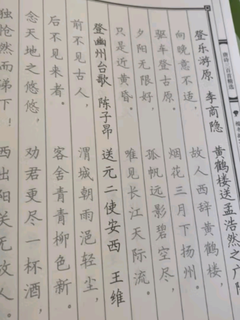 登乐游原 李商隐 黄鹤楼送孟浩然之广
向晚意不适， 故人西辞黄鹤楼，
驱车登古原。 烟花三月下扬州。
夕阳无限好， 孤帆远影碧空尽，
只是近黄昏。 唯见长江天际流。
登幽州台歌 陈子昂 送元二使安西 王维
前不见古人， 渭城朝雨浥轻尘，
后不见来者。 客舍青青柳色新。
念天地之悠悠， 劝君更尽一杯酒，
独怆然而涕下！ 西出阳关无故人。